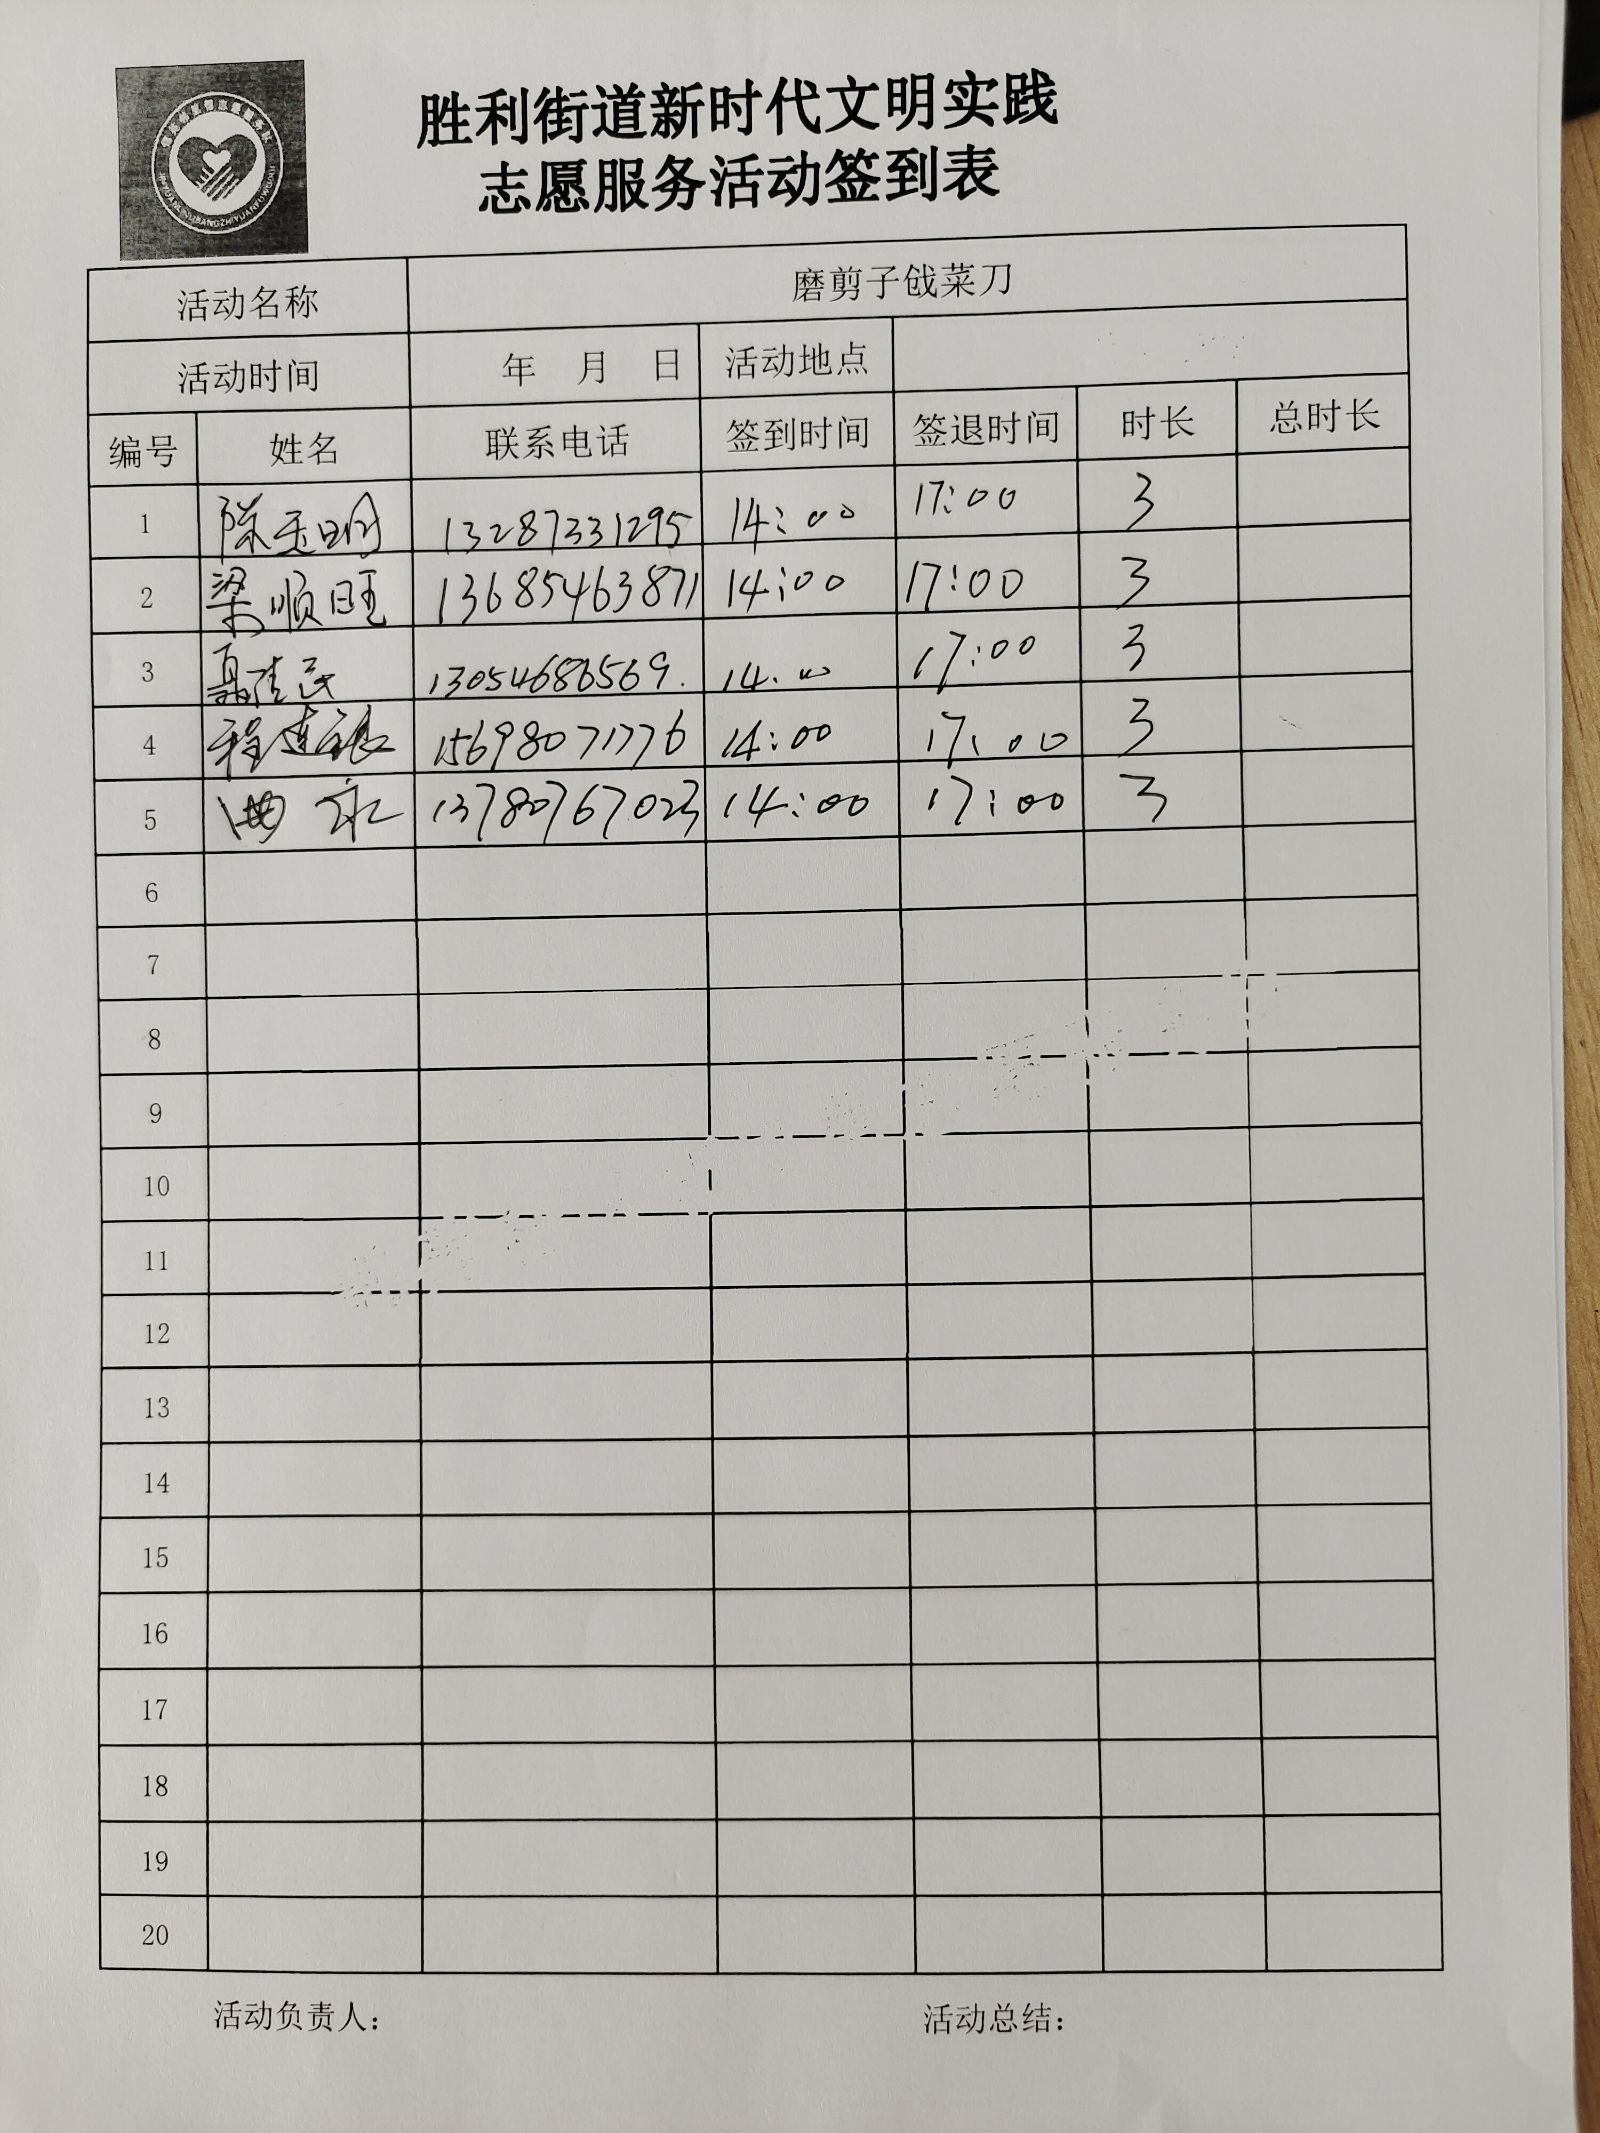 胜利街道新时代文明实践
志愿服务活动签到表
活动名称 磨剪子戗菜刀
活动时间 年 月 日 活动地点
编号 姓名 联系电话 签到时间 签退时间 时长 总时长
1 陈玉明 13287331295 14:00 17:00 3
2 梁顺旺 13685463871 14:00 17:00 3
3 聂佳民 13054686569. 14:00 17:00 3
4 程连银 15698071776 14:00 17:00 3
5 曲永 13780767023 14:00 17:00 3
6
7
8
9
10
11
12
13
14
15
16
17
18
19
20
活动负责人： 活动总结：